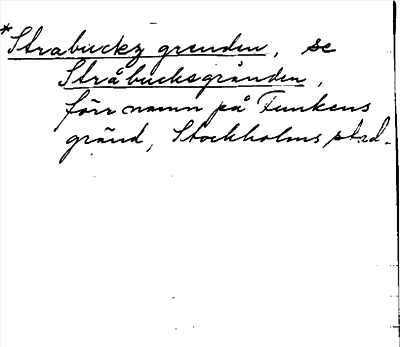 *Strabuckz grenden, se
Stråbucksgränden,
förr namn på Funkens
gränd, Stockholms stad.